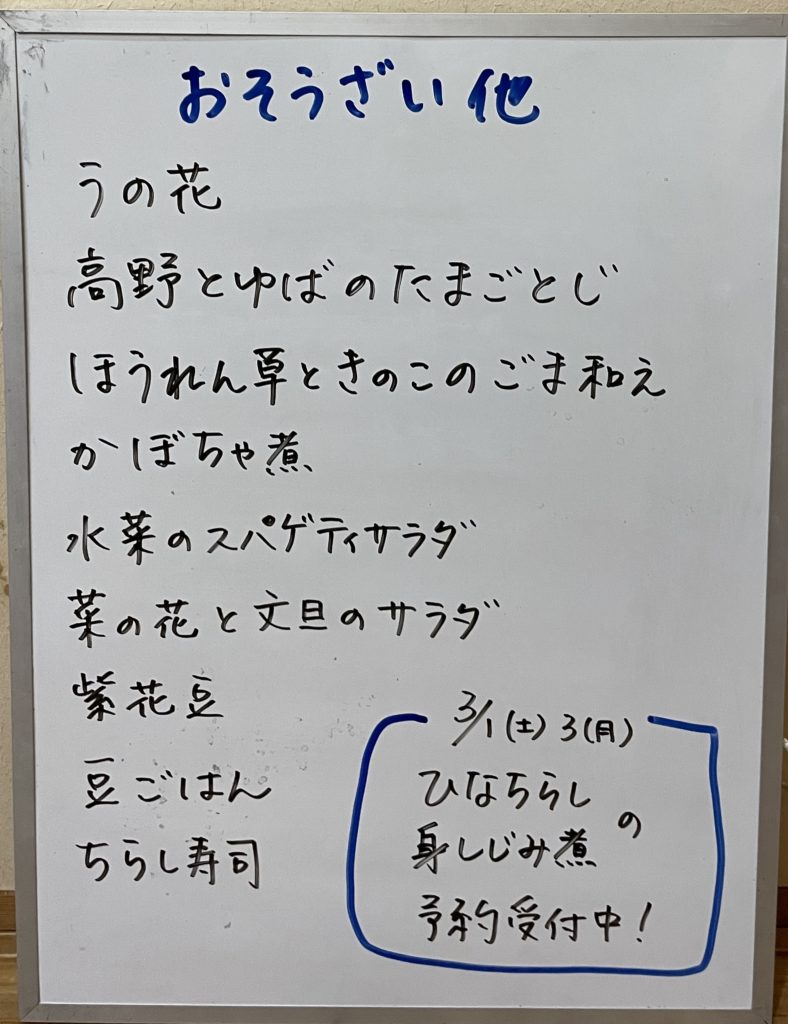 おそうざい他
うの花
高野とゆばのたまごとじ
ほうれん草ときのこのごま和え
かぼちゃ煮
水菜のスパゲティサラダ
菜の花と文旦のサラダ
紫花豆
豆ごはん
ちらし寿司
3/1(土)3(月)
ひなちらし
身しじみ煮
の
予約受付中!